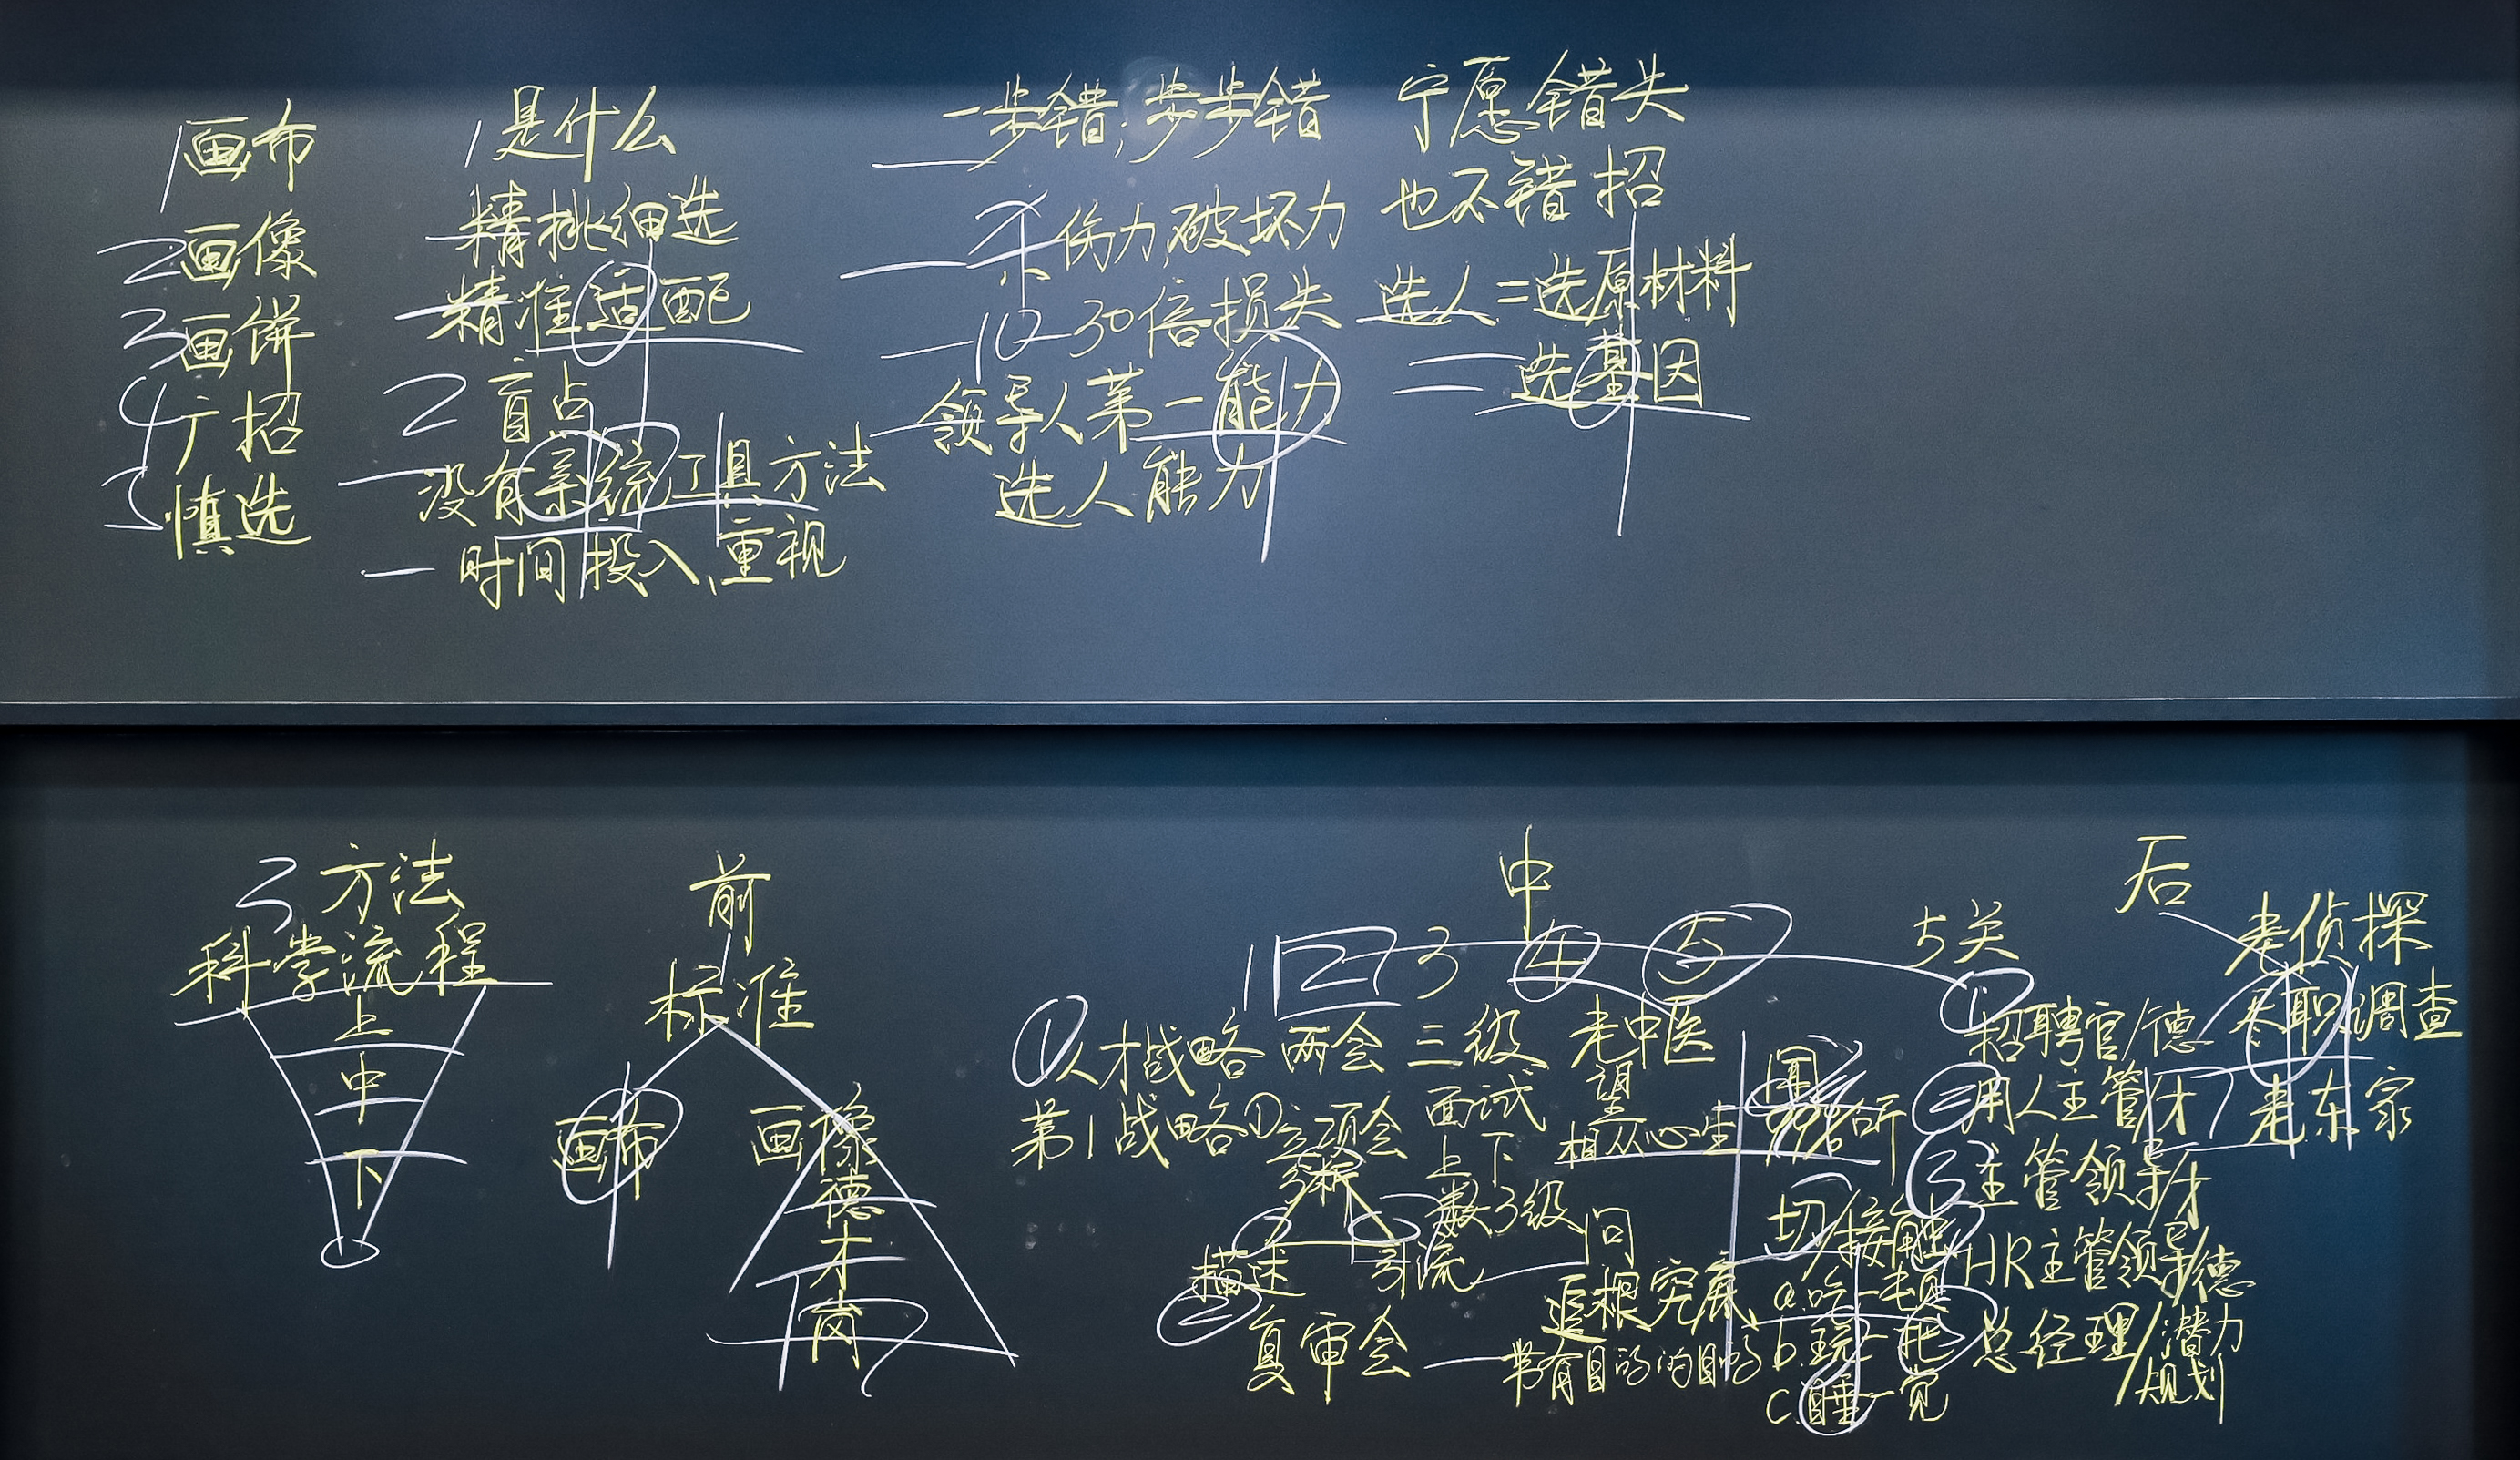 1画布
2画像
3画饼
4广招
5慎选
1是什么
一精挑细选
一精准适配
2盲点
一没有系统工具方法
一时间投入、重视
一步错,步步错
一杀伤力,破坏力
一10-30倍损失
领导人第一能力
选人能力
宁愿错失
也不错招
选人=选原材料
=选基因
3方法
科学流程
上
中
下
前
标准
画布
画像
德
才
岗
中
1 2 3 4 5
①人才战略
第1战略
两会
①立项会
描述
引流
②复审会
三级
面试
上下
差数3级
老中医
望
相从心生
问
一追根究底
一带有目的
切/接触
a.吃一顿
b.玩一把
c.睡一觉
5关
①招聘官/德
②用人主管/才
③主管领导/才
HR主管领导/德
总经理/潜力
规划
后
老侦探
尽职调查
老东家